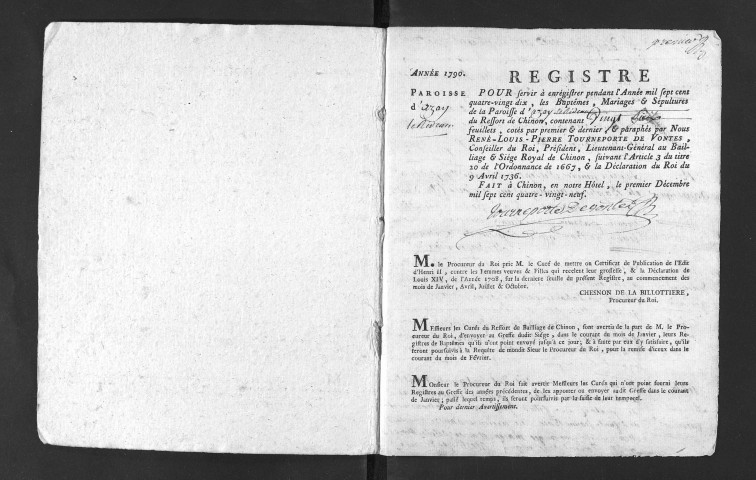 premier
ANNÉE 1790.
REGISTRE
PAROISSE
d'azay
lerideau
POUR servir à enrégistrer pendant l'Année mil sept cens
quatre-vingt dix, les Baptêmes, Mariages & Sépultures
de la Paroisse d'azay lerideau
du Ressort de Chinon, contenant vingt
feuillets, cotés par premier & dernier, & paraphés par Nous
RENÉ-LOUIS-PIERRE TOURNEPORTE DE VONTES,
Conseiller du Roi, Président, Lieutenant-Général au Bail-
liage & Siége Royal de Chinon, suivant l'Article 3 du titre
20 de l'Ordonnance de 1667, & la Déclaration du Roi du
9 Avril 1736.
FAIT à Chinon, en notre Hôtel, le premier Décembre
mil sept cens quatre-vingt-neuf.
Tourneporte Devontes
M. le Procureur du Roi prie M. le Curé de mettre un Certificat de Publication de l'Edit
d'Henri II, contre les Femmes veuves & Filles qui recelent leur grossesse, & la Déclaration de
Louis XIV, de l'Année 1708, sur la derniere feuille du présent Registre, au commencement des
mois de Janvier, Avril, Juillet & Octobre.
CHESNON DE LA BILLOTTIERE,
Procureur du Roi.
MEssieurs les Curés du Ressort du Bailliage de Chinon, sont avertis de la part de M. le Pro-
cureur du Roi, d'envoyer au Greffe dudit Siége, dans le courant du mois de Janvier, leurs Re-
gistres de Baptêmes qu'ils n'ont point envoyé jusqu'à ce jour; & à faute par eux d'y satisfaire, qu'ils
seront poursuivis à la Requête de mondit Sieur le Procureur du Roi, pour la remise d'iceux dans le
courant du mois de Février.
MOnsieur le Procureur du Roi fait avertir Messieurs les Curés qui n'ont point fourni leurs
Registres au Greffe des années précédentes, de les apporter ou envoyer audit Greffe dans le courant
de Janvier; passé lequel temps, ils seront poursuivis par la saisie de leur temporel.
Pour dernier Avertissement.